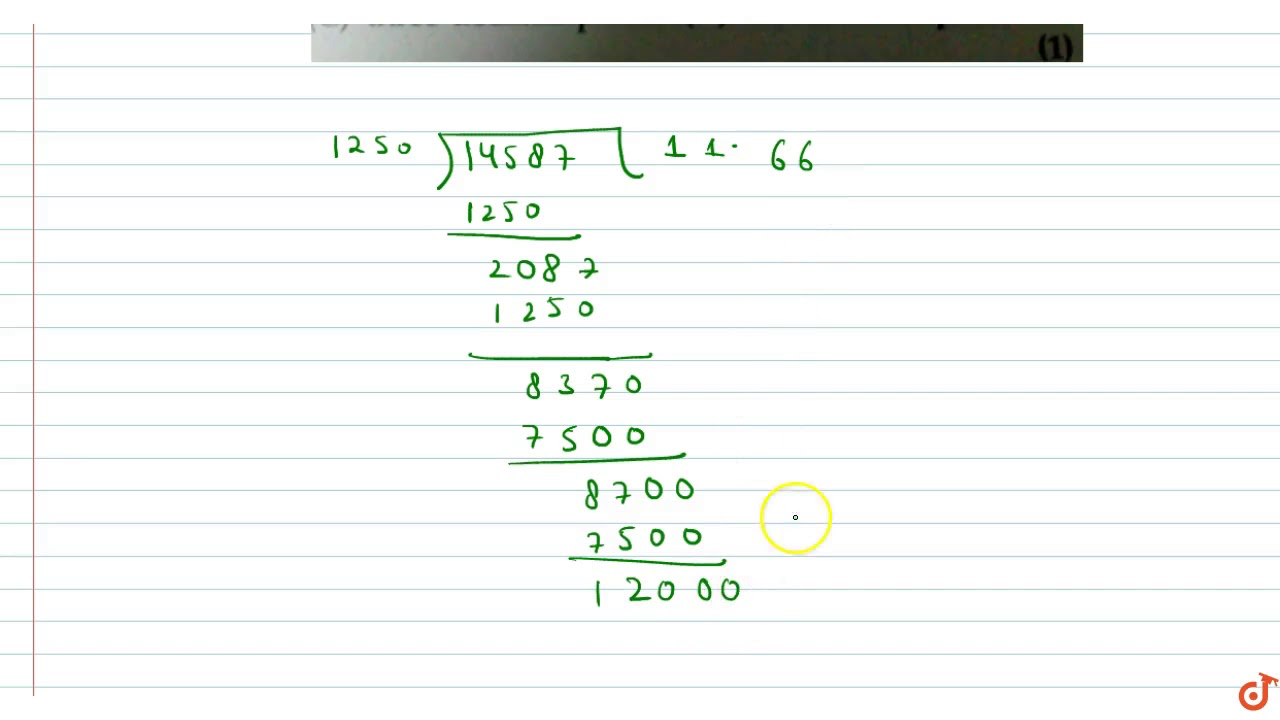 (1)
1250 ) 14587 ( 11.66
1250
2087
1250
8370
7500
8700
7500
12000